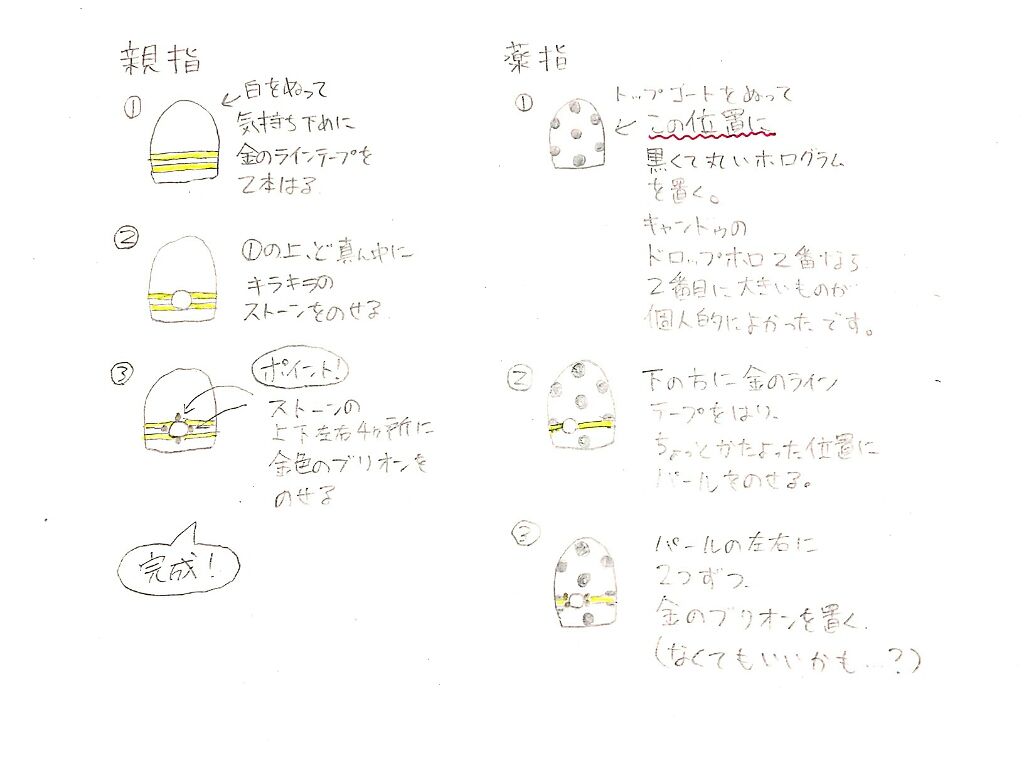 親指
①
白をぬって
気持ち下めに
金のラインテープを
2本はる
②
①の上、ど真ん中に
キラキラの
ストーンをのせる
③
ポイント!
ストーンの
上下左右4ヶ所に
金色のブリオンを
のせる
完成!
薬指
①
トップコートをぬって
この位置に
黒くて丸いホログラム
を置く。
キャンドゥの
ドロップホロ2番なら
2番目に大きいものが
個人的によかったです。
②
下の方に金のライン
テープをはり、
ちょっとかたよった位置に
パールをのせる。
③
パールの左右に
2つずつ、
金のブリオンを置く.
(なくてもいいかも…?)